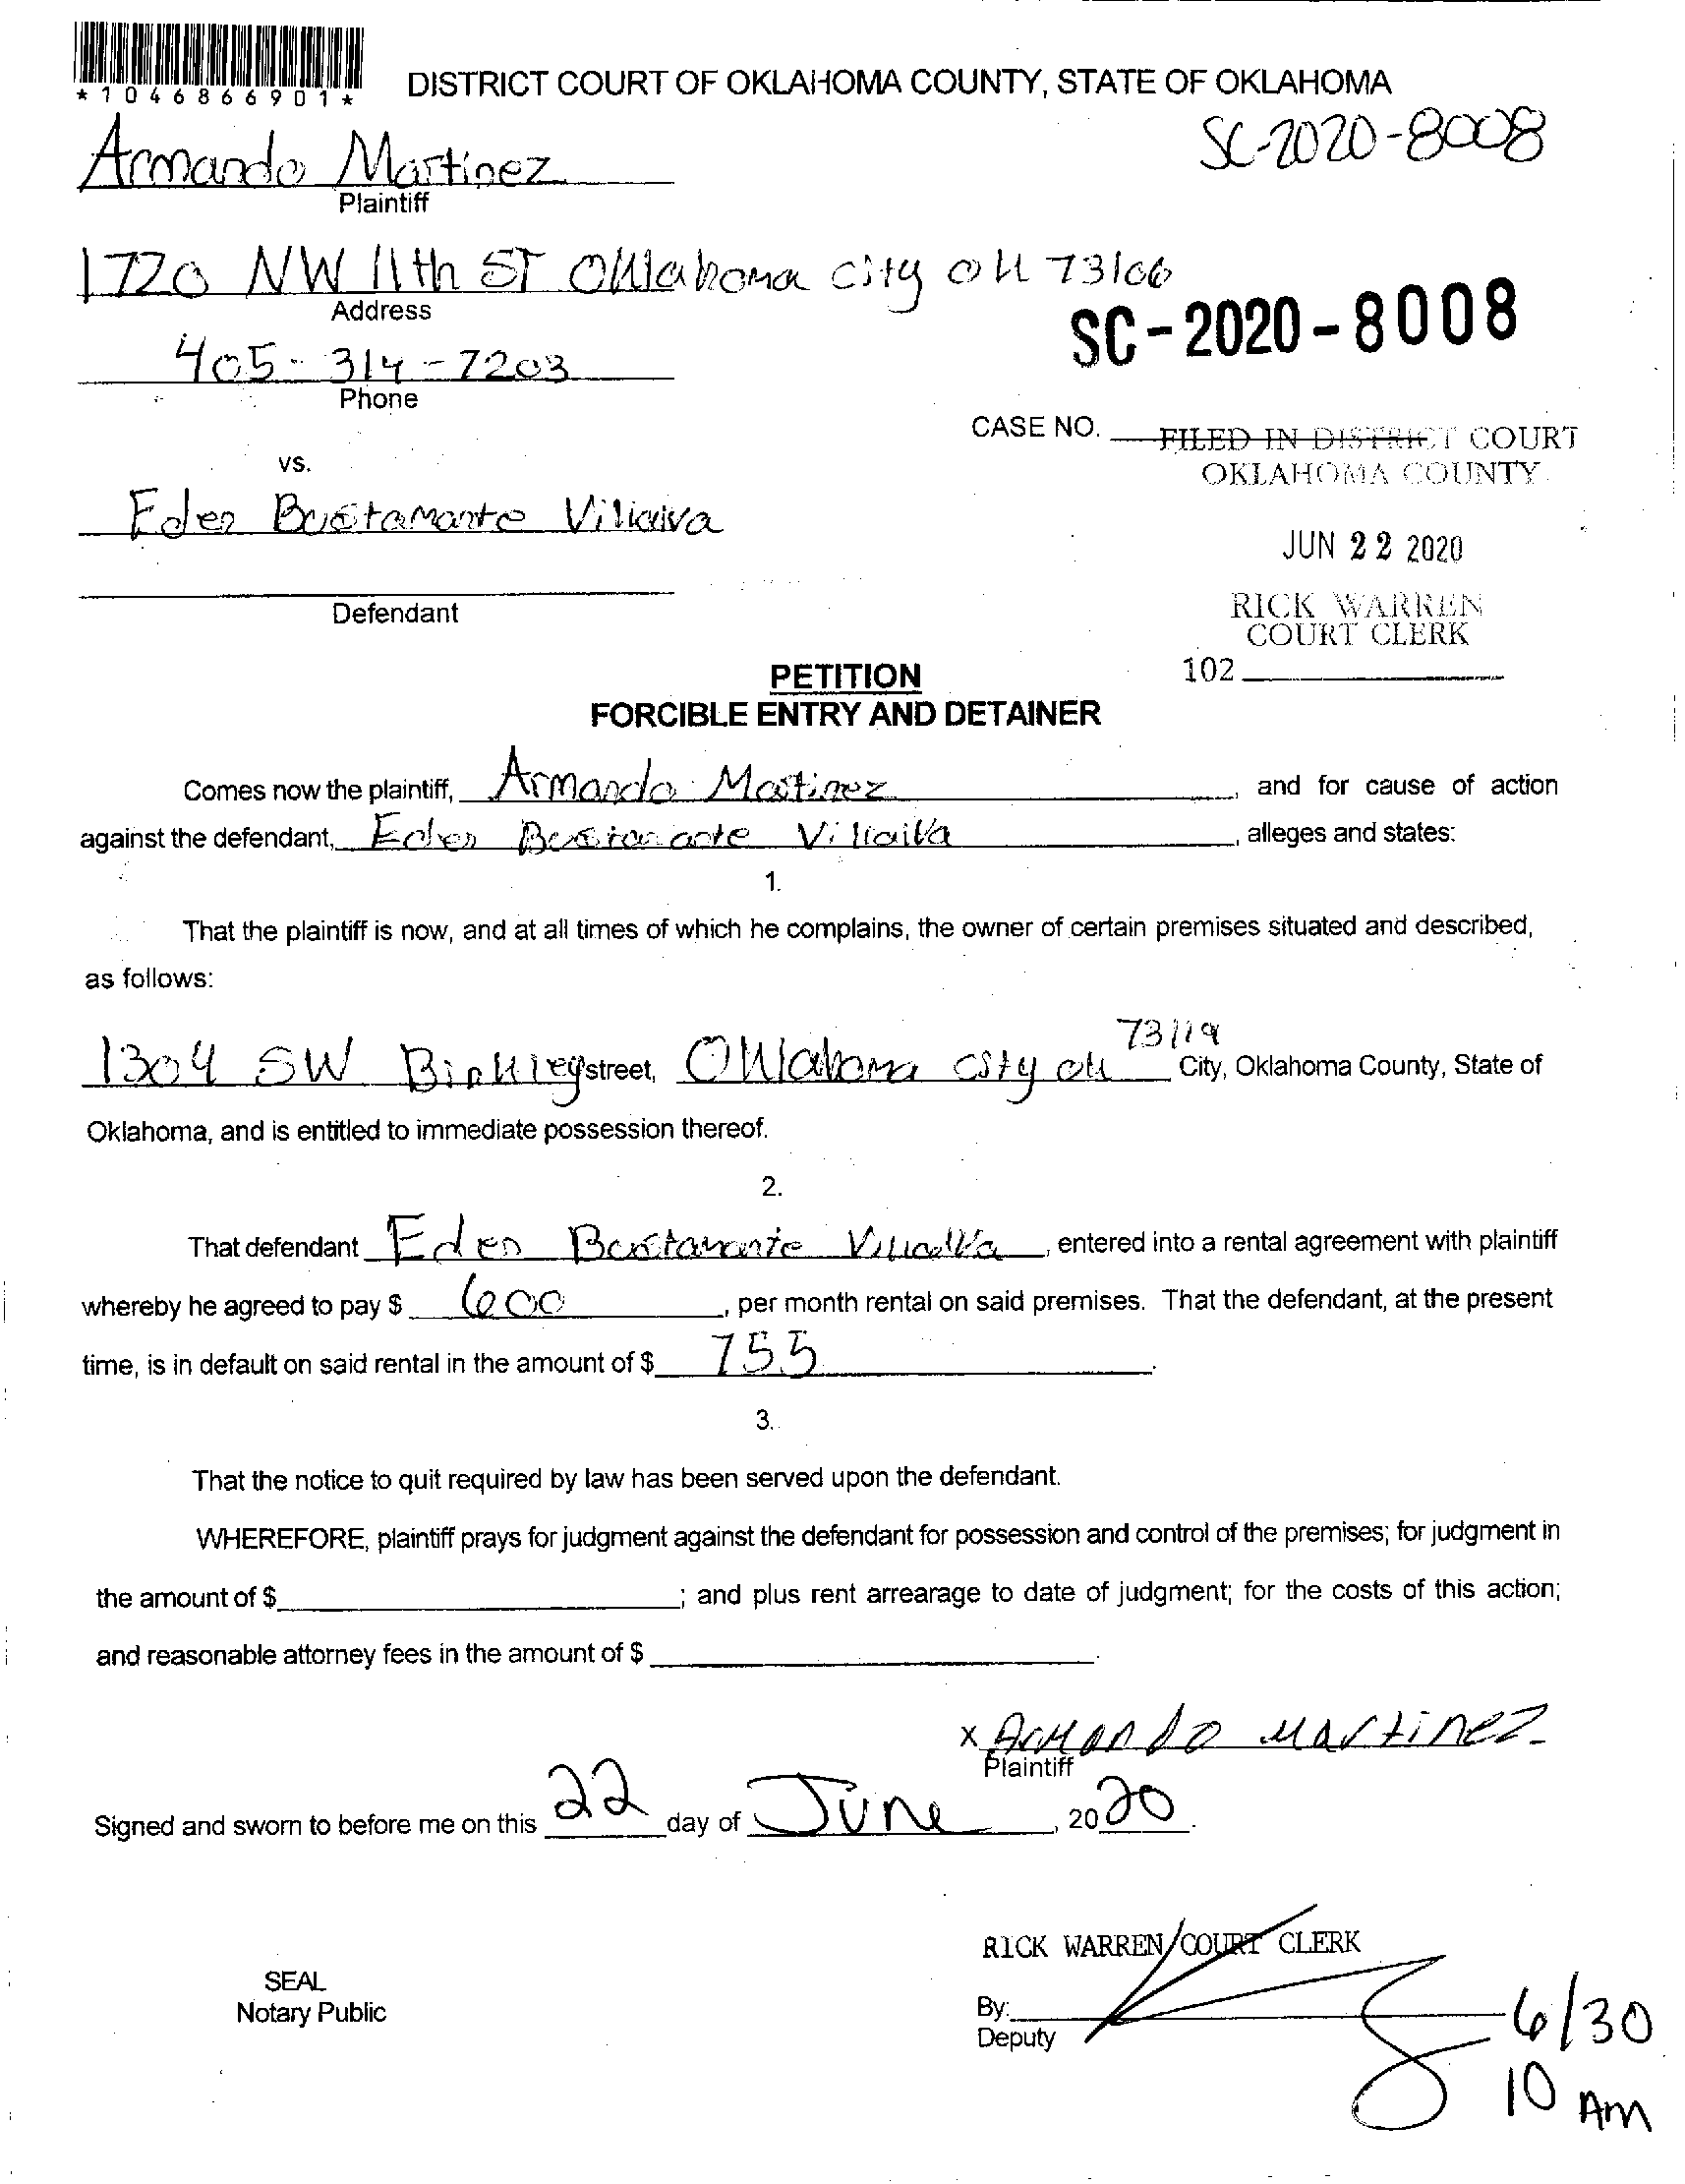 *1046866901*
DISTRICT COURT OF OKLAHOMA COUNTY, STATE OF OKLAHOMA
SC-2020-8008
Armando Martinez
Plaintiff
1720 NW 11th ST Oklahoma city ok 73106
Address
SC-2020-8008
405-314-7203
Phone
CASE NO.
FILED IN DISTRICT COURT
OKLAHOMA COUNTY
vs.
Eder Bustamante
JUN 22 2020
Defendant
RICK WARREN
COURT CLERK
102
PETITION
FORCIBLE ENTRY AND DETAINER
Comes now the plaintiff, Armando Martinez, and for cause of action
against the defendant, Eder Bustamante, alleges and states:
1.
That the plaintiff is now, and at all times of which he complains, the owner of certain premises situated and described,
as follows:
73119
1304 SW Binkley street, Oklahoma city ok City, Oklahoma County, State of
Oklahoma, and is entitled to immediate possession thereof.
2.
That defendant Eder Bustamante, entered into a rental agreement with plaintiff
whereby he agreed to pay $ 600, per month rental on said premises. That the defendant, at the present
time, is in default on said rental in the amount of $ 755.
3.
That the notice to quit required by law has been served upon the defendant.
WHEREFORE, plaintiff prays for judgment against the defendant for possession and control of the premises; for judgment in
the amount of $ ; and plus rent arrearage to date of judgment; for the costs of this action;
and reasonable attorney fees in the amount of $ .
x Armando Martinez
Plaintiff
Signed and sworn to before me on this 22 day of June, 2020.
RICK WARREN COURT CLERK
SEAL
Notary Public
By:
Deputy
6/30
10 AM